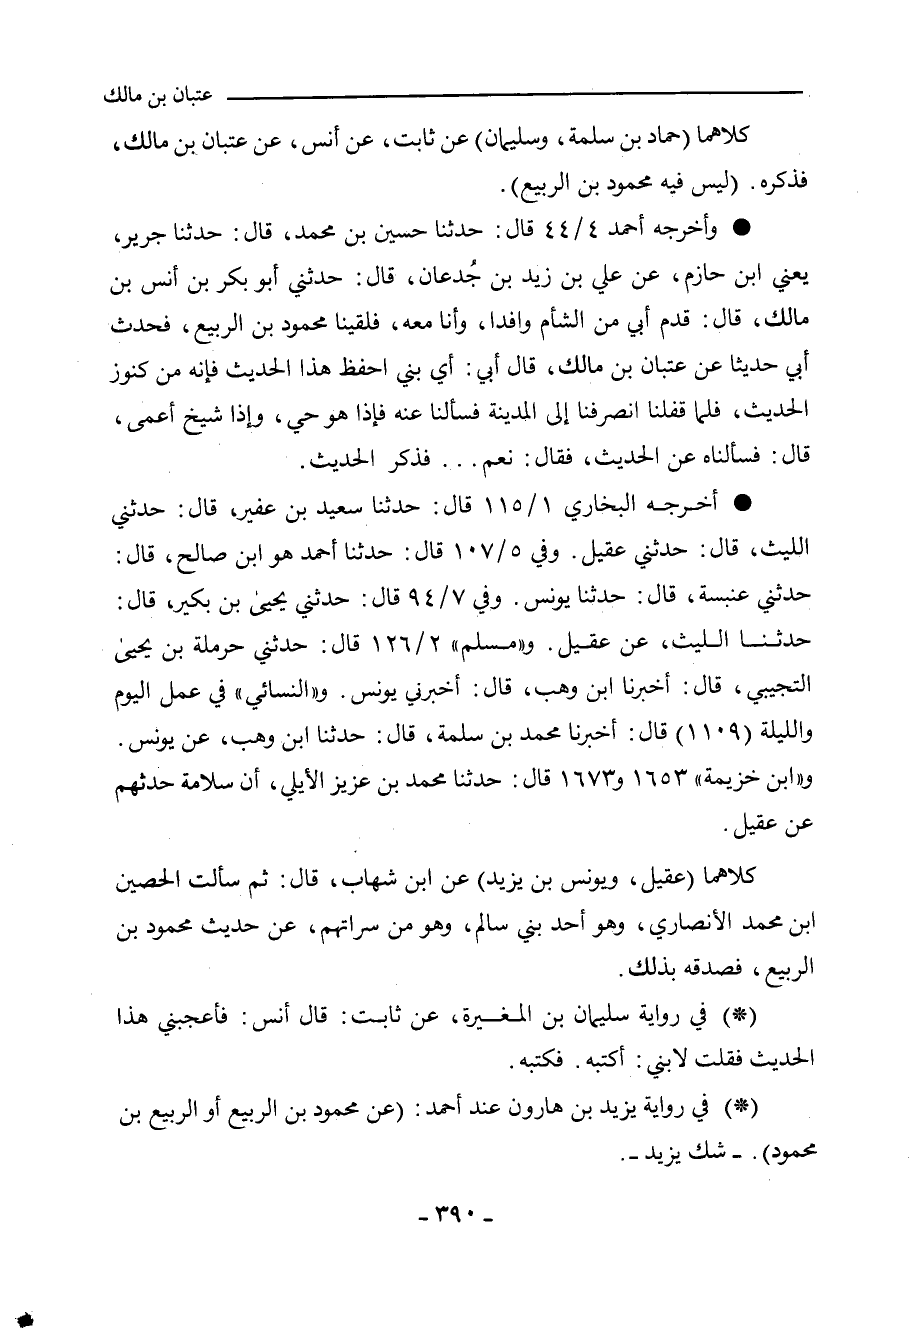 عتبان بن مالك
كلاهما (حماد بن سلمة، وسليمان) عن ثابت، عن أنس، عن عتبان بن مالك،
فذكره. (ليس فيه محمود بن الربيع).
● وأخرجه أحمد ٤/٤٤ قال: حدثنا حسين بن محمد، قال: حدثنا جرير،
يعني ابن حازم، عن علي بن زيد بن جُدعان، قال: حدثني أبو بكر بن أنس بن
مالك، قال: قدم أبي من الشأم وافدا، وأنا معه، فلقينا محمود بن الربيع، فحدث
أبي حديثا عن عتبان بن مالك، قال أبي: أي بني احفظ هذا الحديث فإنه من كنوز
الحديث، فلما قفلنا انصرفنا إلى المدينة فسألنا عنه فإذا هو حي، وإذا شيخ أعمى،
قال: فسألناه عن الحديث، فقال: نعم... فذكر الحديث.
● أخرجه البخاري ١/١١٥ قال: حدثنا سعيد بن عفير، قال: حدثني
الليث، قال: حدثني عقيل. وفي ٥/١٠٧ قال: حدثنا أحمد هو ابن صالح، قال:
حدثني عنبسة، قال: حدثنا يونس. وفي ٧/٩٤ قال: حدثني يحيىٰ بن بكير، قال:
حدثنا الليث، عن عقيل. و«مسلم» ٢/١٢٦ قال: حدثني حرملة بن يحيىٰ
التجيبي، قال: أخبرنا ابن وهب، قال: أخبرني يونس. و«النسائي» في عمل اليوم
والليلة (١١٠٩) قال: أخبرنا محمد بن سلمة، قال: حدثنا ابن وهب، عن يونس.
و«ابن خزيمة» ١٦٥٣ و١٦٧٣ قال: حدثنا محمد بن عزيز الأيلي، أن سلامة حدثهم
عن عقيل.
كلاهما (عقيل، ويونس بن يزيد) عن ابن شهاب، قال: ثم سألت الحصين
ابن محمد الأنصاري، وهو أحد بني سالم، وهو من سراتهم، عن حديث محمود بن
الربيع، فصدقه بذلك.
(*) في رواية سليمان بن المغيرة، عن ثابت: قال أنس: فأعجبني هذا
الحديث فقلت لابني: أكتبه. فكتبه.
(*) في رواية يزيد بن هارون عند أحمد: (عن محمود بن الربيع أو الربيع بن
محمود). - شك يزيد -.
- ٣٩٠ -